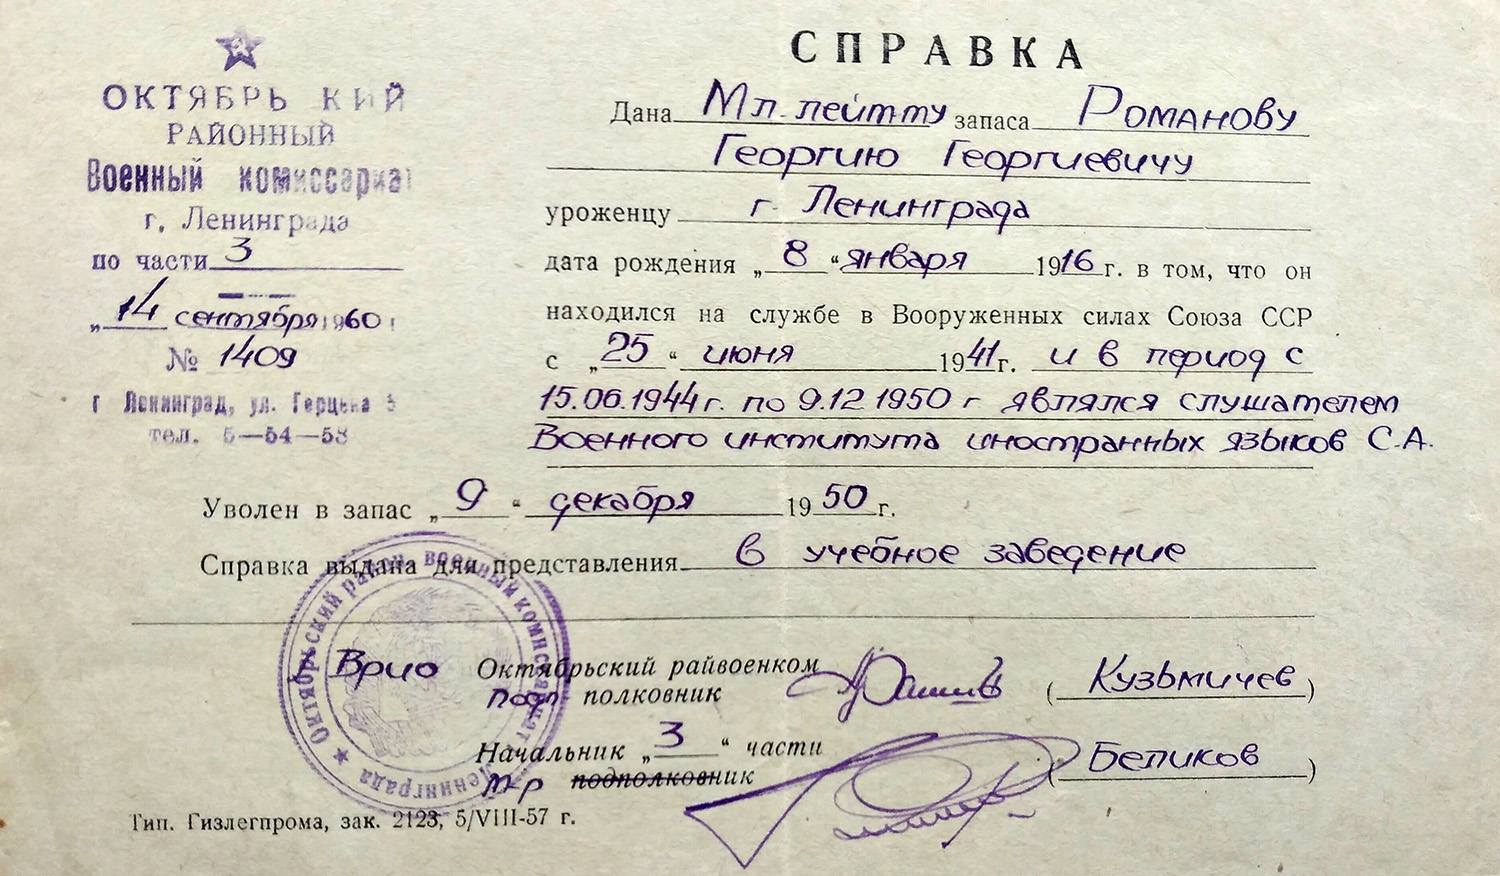 ОКТЯБРЬ КИЙ
РАЙОННЫЙ
Военный комиссариат
г. Ленинграда
по части 3
„14 сентября 1960 г
№ 1409
г Ленинград, ул. Герцена
тел. 5—54—58
СПРАВКА
Дана Мл. лейт-ту запаса Романову
Георгию Георгиевичу
уроженцу г. Ленинграда
дата рождения „8“ января 1916 г. в том, что он
находился на службе в Вооруженных силах Союза ССР
с „25“ июня 1941 г. и в период с
15.06.1944 г. по 9.12.1950 г являлся слушателем
Военного института иностранных языков С.А.
Уволен в запас „9“ декабря 1950 г.
Справка выдана для представления в учебное заведение
Врио Октябрьский райвоенком
подполковник (Кузьмичев)
Начальник „3“ части
м-р подполковник (Беликов)
Октябрьский район. военный комиссариат
Ленинграда
Тип. Гизлегпрома, зак. 2123, 5/VIII-57 г.